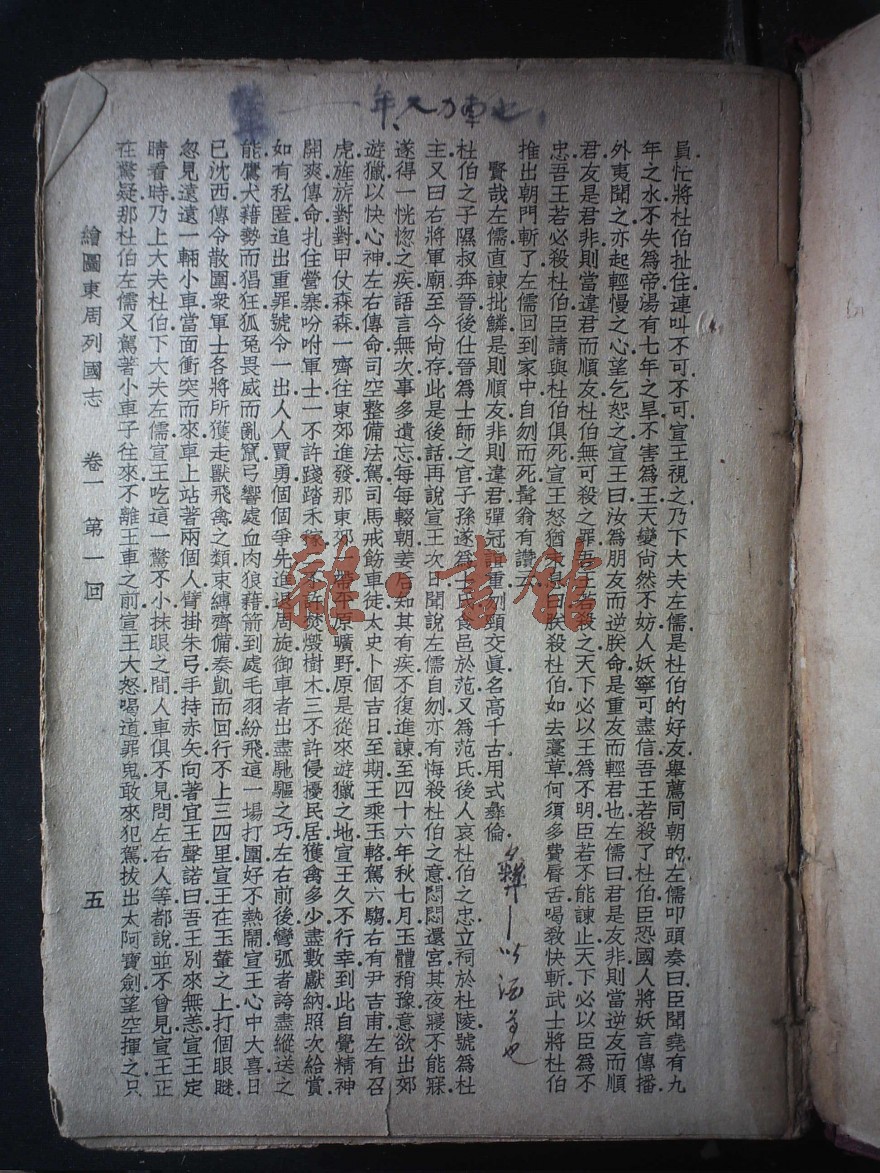 員忙將杜伯扯住連叫不可不可宣王視之乃下大夫左儒是杜伯的好友舉薦同朝的左儒叩頭奏曰臣聞堯有九
年之水不失爲帝湯有七年之旱不害爲王天變尙然不妨人妖寧可盡信吾王若殺了杜伯臣恐國人將妖言傳播
外夷聞之亦起輕慢之心望乞恕之宣王曰汝爲朋友而逆朕命是重友而輕君也左儒曰君是友非則當逆友而順
君友是君非則當違君而順友杜伯無可殺之罪吾王若殺之天下必以王爲不明臣若不能諫止天下必以臣爲不
忠吾王若必殺杜伯臣請與杜伯俱死宣王怒猶未息曰朕殺杜伯如去藁草何須多費脣舌喝敎快斬武士將杜伯
推出朝門斬了左儒回到家中自刎而死髥翁有讚云
賢哉左儒直諫批鱗是則順友非則違君彈冠誼重刎頸交眞名高千古用式彝倫
杜伯之子隰叔奔晉後仕晉爲士師之官子孫遂爲士氏食邑於范又爲范氏後人哀杜伯之忠立祠於杜陵號爲杜
主又曰右將軍廟至今尙存此是後話再說宣王次日聞說左儒自刎亦有悔殺杜伯之意悶悶還宮其夜寢不能寐
遂得一恍惚之疾語言無次事多遺忘每每輟朝姜后知其有疾不復進諫至四十六年秋七月玉體稍豫意欲出郊
遊獵以快心神左右傳命司空整備法駕司馬戒飭車徒太史卜個吉日至期王乘玉輅駕六騶右有尹吉甫左有召
虎旌旂對對甲仗森森一齊往東郊進發那東郊一帶平原曠野原是從來遊獵之地宣王久不行幸到此自覺精神
開爽傳命扎住營寨吩咐軍士一不許踐踏禾稼二不許焚燬樹木三不許侵擾民居獲禽多少盡數獻納照次給賞
如有私匿追出重罪號令一出人人賈勇個個爭先進退周旋御車者出盡馳驅之巧左右前後彎弧者誇盡縱送之
能鷹犬藉勢而猖狂狐兔畏威而亂竄弓響處血肉狼藉箭到處毛羽紛飛這一場打圍好不熱鬧宣王心中大喜日
已沈西傳令散圍衆軍士各將所獲走獸飛禽之類束縛齊備奏凱而回行不上三四里宣王在玉輦之上打個眼瞇
忽見遠遠一輛小車當面衝突而來車上站著兩個人臂掛朱弓手持赤矢向著宣王聲諾曰吾王別來無恙宣王定
睛看時乃上大夫杜伯下大夫左儒宣王吃這一驚不小抹眼之間人車俱不見問左右人等都說並不曾見宣王正
在驚疑那杜伯左儒又駕著小車子往來不離王車之前宣王大怒喝道罪鬼敢來犯駕拔出太阿寶劍望空揮之只
繪圖東周列國志 卷一 第一回 五
雜·書館